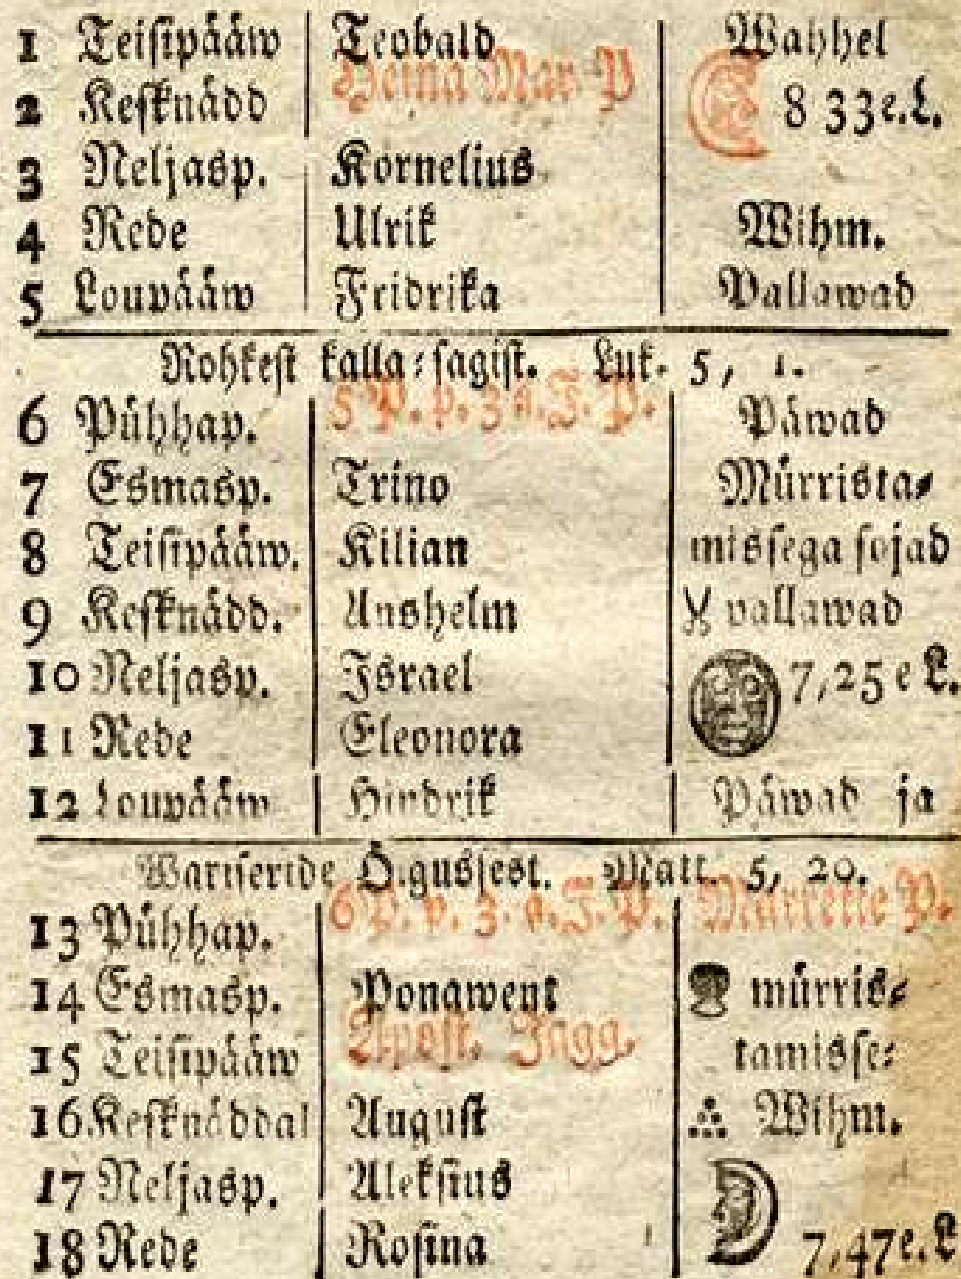 1 Teisipääw Teobald Wahhel
2 Kesknädd Heina Mar. P 8 33 e. L.
3 Neljasp. Kornelius
4 Rede Ulrik Wihm.
5 Loupääw Fridrika Pallawad
Rohkest kalla-sagist. Luk. 5, 1.
6 Pühhap. 5 P. p. 3 a. J. P. Päwad
7 Esmasp. Trino Mürrista-
8 Teisipääw. Kilian missega sojad
9 Kesknädd. Anshelm pallawad
10 Neljasp. Israel 7,25 e L.
11 Rede Eleonora
12 Loupääw Hindrik Päwad ja
Wariseride Õigussest. Matt. 5, 20.
13 Pühhap. 6 P. p. 3. a. J. P. Marrette P.
14 Esmasp. Ponawent mürris-
15 Teisipääw Apost. Jagg. tamisse-
16 Kesknäddal August Wihm.
17 Neljasp. Aleksius
18 Rede Rosina 7,47 e. L